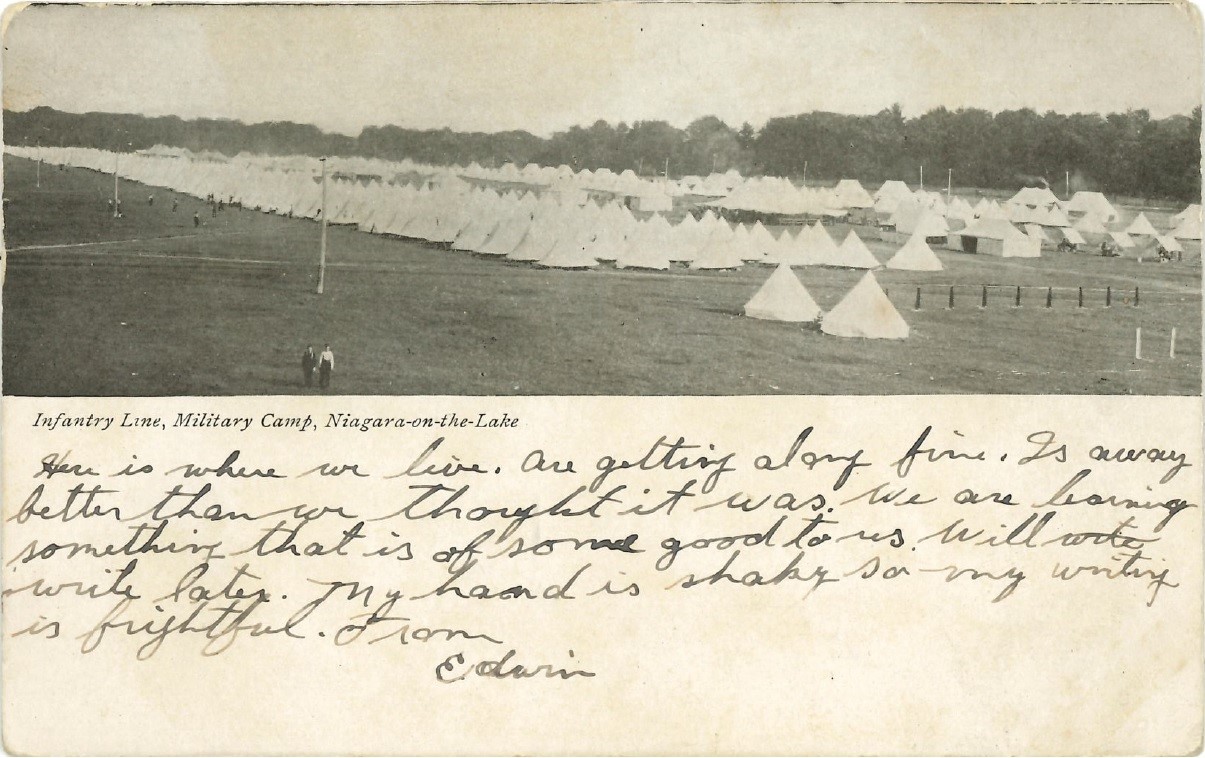 Infantry Line, Military Camp, Niagara-on-the-Lake
Here is where we live. Are getting along fine. Is away
better than we thought it was. We are learning
something that is of some good to us. Will wrte
write later. My hand is shaky so my writing
is frightful. From
Edwin